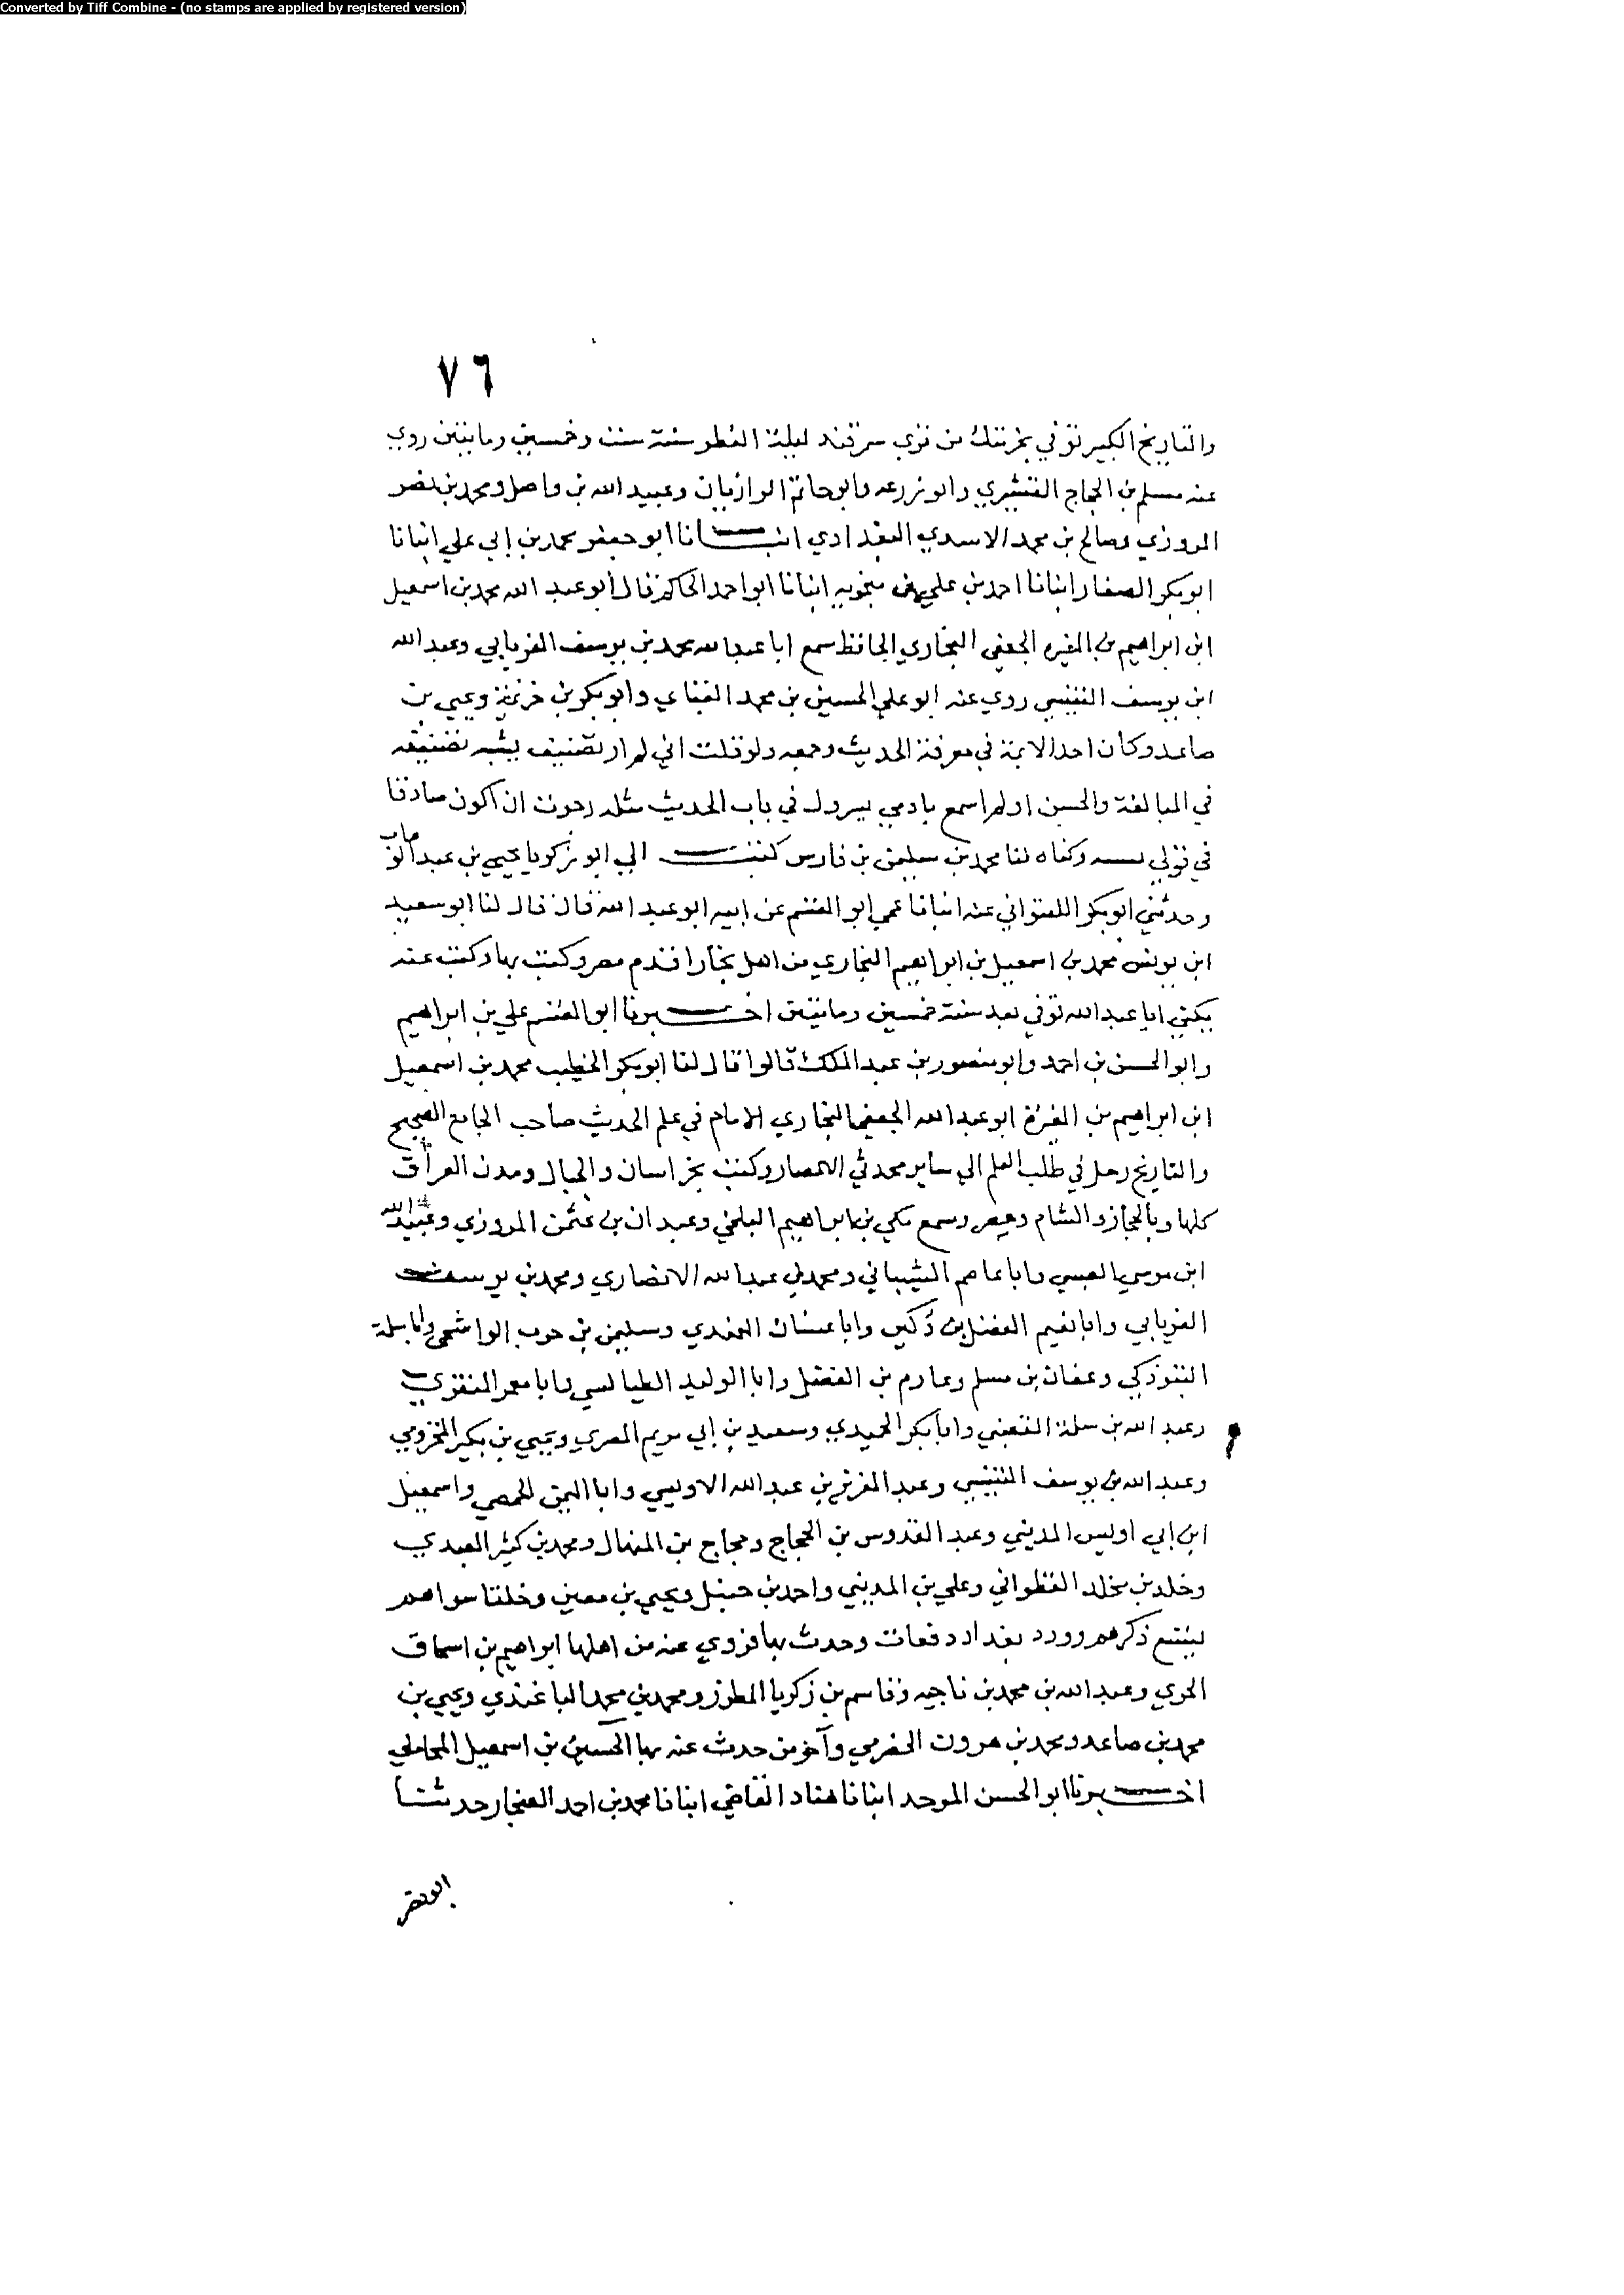 Converted by Tiff Combine - (no stamps are applied by registered version)
٧٦
والتاريخ الكبير توفي بخرتنك من قري سمرقند ليلة الفطر سنة ست وخمسين ومايتين روي
عنه مسلم بن الحجاج القشيري وابو زرعه وابو حاتم الرازيان وعبيد الله بن واصل ومحمد بن نصر
المروزي وصالح بن محمد الاسدي البغدادي انبانا ابو جعفر محمد بن ابي علي انبانا
ابو بكر الصفار انبانا احمد بن علي بن منجويه انبانا ابو احمد الحاكم قال أبو عبد الله محمد بن اسمعيل
ابن ابراهيم بن المغيره الجعفي البخاري الحافظ سمع ابا عبد الله محمد بن يوسف الفريابي وعبد الله
ابن يوسف التنيسي روي عنه ابو علي الحسين بن محمد القباي وابو بكر بن خزيمة ويحيي بن
صاعد وكان احد الايمة في معرفة الحديث وجمعه ولو قلت اني لم ار تصنيف يشبه تصنيفه
في المبالغة والحسن اولم اسمع بادمي يبرول في باب الحديث مثله رجوت ان اكون صادقا
في قولي وكناه لنا محمد بن سليمن بن فارس كتب الي ابو زكريا يحيي بن عبد الوهاب
وحدثني ابو بكر اللفتواني عنه انبانا عمي ابو القسم عن ابيه ابو عبد الله قال قال لنا ابو سعيد
ابن يونس محمد بن اسمعيل بن ابراهيم البخاري من اهل بخارا قدم مصر وكتب بها وكتب عنه
يكني ابا عبد الله توفي بعد سنة خمسين ومايتين اخبرنا ابو القسم علي بن ابراهيم
وابو الحسن بن احمد وابو منصور بن عبد الملك قالوا قال لنا ابو بكر الخطيب محمد بن اسمعيل
ابن ابراهيم بن المغيرة ابو عبد الله الجعفي البخاري الامام في علم الحديث صاحب الجامع الصحيح
والتاريخ رحل في طلب العلم الي ساير محدثي الامصار وكتب بخراسان والجبال ومدن العراق
كلها وبالحجاز والشام ومصر وسمع مكي بن ابراهيم البلخي وعبدان بن عثمن المروزي وعبيد الله
ابن موسي العبسي وابا عاصم الشيباني ومحمد بن عبد الله الانصاري ومحمد بن يوسف
الفريابي وابا نعيم الفضل بن دكين وابا غسان النهدي وسليمن بن حرب الواشحي وابا سلمة
التبوذكي وعفان بن مسلم وعارم بن الفضل وابا الوليد الطيالسي وابا معمر المنقري
وعبد الله بن سلمة القعنبي وابا بكر الحميدي وسعيد بن ابي مريم المصري ويحيي بن بكير المخزومي
وعبد الله بن يوسف التنيسي وعبد العزيز بن عبد الله الاويسي وابا اليمن الحمصي واسمعيل
ابن ابي اويس المديني وعبد القدوس بن الحجاج وحجاج بن المنهال ومحمد بن كثير العبدي
وخلد بن مخلد القطواني وعلي بن المديني واحمد بن حنبل ويحيي بن معين وخلقا سواهم
يتسع ذكرهم وورد بغداد دفعات وحدث بها فروي عنه من اهلها ابراهيم بن اسحاق
الحربي وعبد الله بن محمد بن ناجيه وقاسم بن زكريا المطرز ومحمد بن محمد الباغندي ويحيي بن
محمد بن صاعد ومحمد بن هرون الحضرمي وآخر من حدث عنه بها الحسين بن اسمعيل المحاملي
اخبرنا ابو الحسن الموحد انبانا هناد القاضي انبانا محمد بن احمد الغنجار حدثنا
ابو نصر